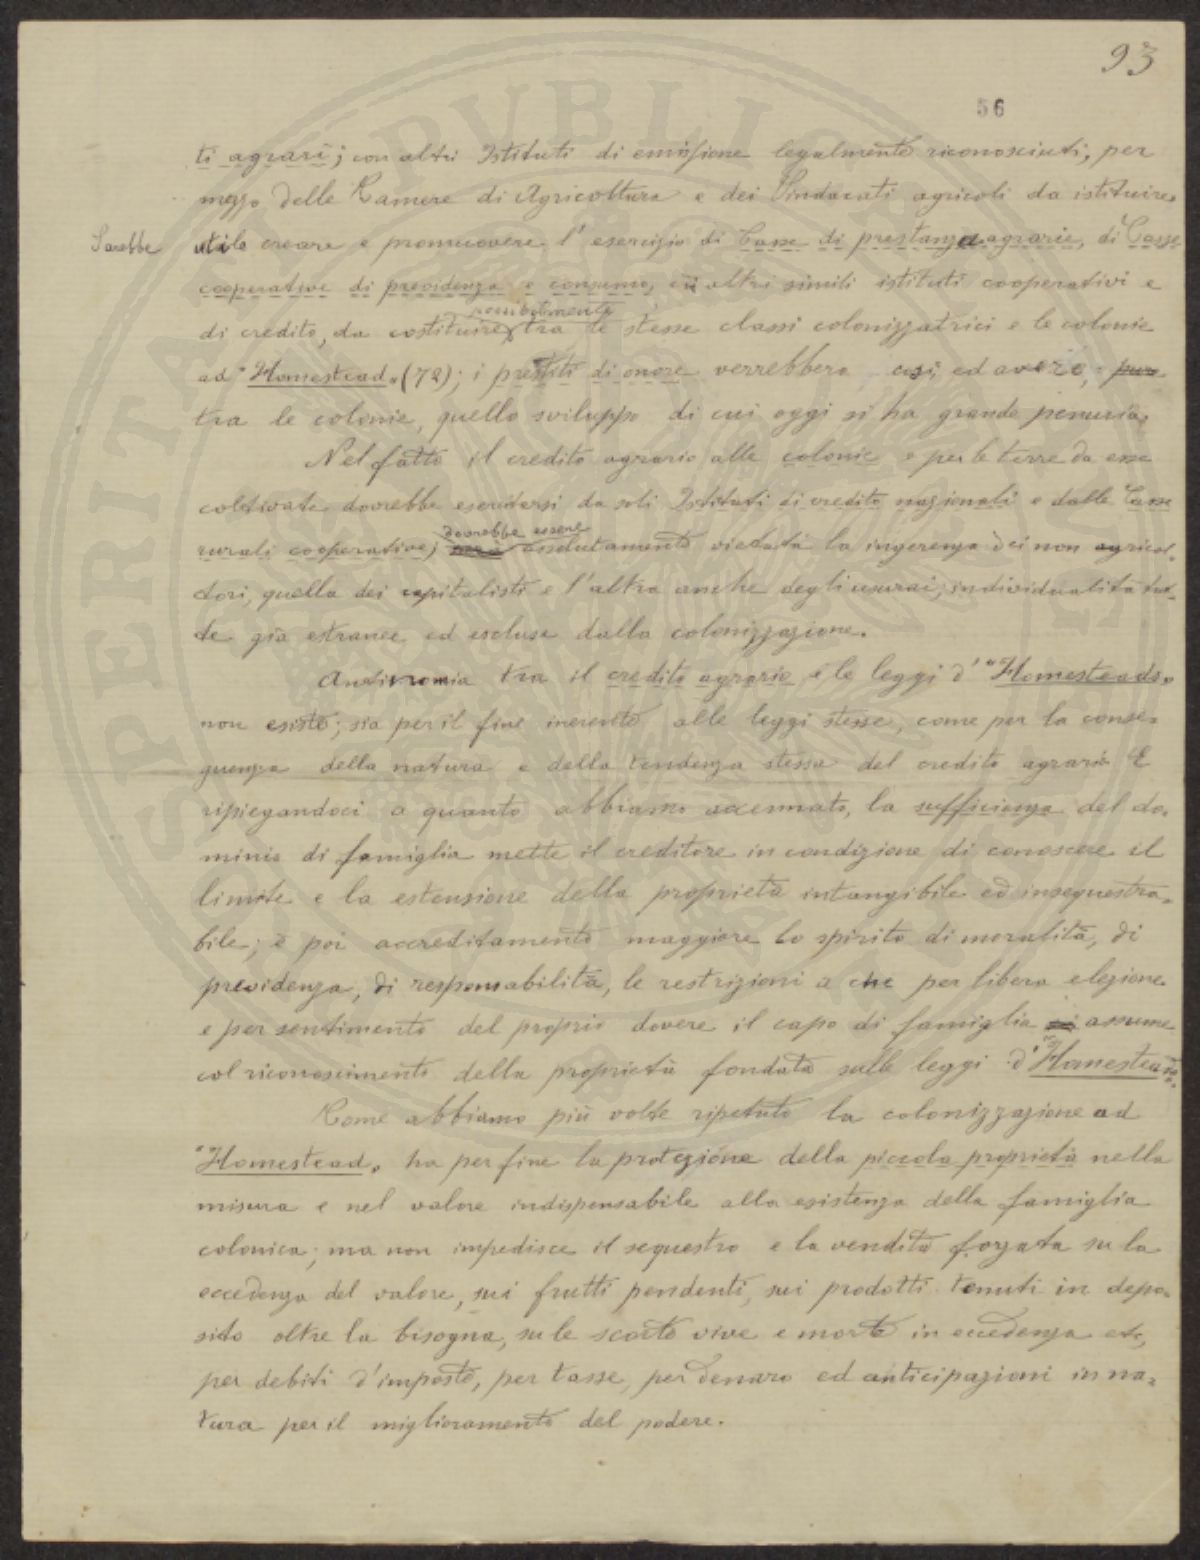 93
56
ti agrari; con altri Istituti di emissione legalmente riconosciuti, per
mezzo delle Camere di Agricoltura e dei Sindacati agricoli da istituire.
Sarebbe utile creare e promuovere l'esercizio di Casse di prestanza agrarie, di Casse
cooperative di previdenza e consumo, ed altri simili istituti cooperativi e
di credito, da costituire tra le stesse classi colonizzatrici e le colonie
ad "Homestead„ (72); i prestiti di onore verrebbero così ad avere, pure
tra le colonie, quello sviluppo di cui oggi si ha grande penuria.
Nel fatto il credito agrario alle colonie e per le terre da esse
coltivate dovrebbe esercitarsi da soli Istituti di credito nazionali e dalle Casse
rurali cooperative; dovrebbe essere assolutamente vietata la ingerenza dei non agricol-
tori, quella dei capitalisti e l'altra anche degli usurai, individualità tut-
te già estranee ed escluse dalla colonizzazione.
Antinomia tra il credito agrario e le leggi d'"Homesteads„
non esiste; sia per il fine inerente alle leggi stesse, come per la conse-
guenza della natura e della tendenza stessa del credito agrario. E
ripiegandoci a quanto abbiamo accennato, la sufficienza del do-
minio di famiglia mette il creditore in condizione di conoscere il
limite e la estensione della proprietà intangibile ed insequestra-
bile; è poi accreditamento maggiore lo spirito di moralità, di
previdenza, di responsabilità, le restrizioni a che per libera elezione
e per sentimento del proprio dovere il capo di famiglia si assume
col riconoscimento della proprietà fondata sulle leggi d'"Homestead„.
Come abbiamo più volte ripetuto la colonizzazione ad
"Homestead„ ha per fine la protezione della piccola proprietà nella
misura e nel valore indispensabile alla esistenza della famiglia
colonica; ma non impedisce il sequestro e la vendita forzata su la
eccedenza del valore, sui frutti pendenti, sui prodotti tenuti in depo-
sito oltre la bisogna, su le scorte vive e morte in eccedenza etc,
per debiti d'imposte, per tasse, per denaro ed anticipazioni in na-
tura per il miglioramento del podere.